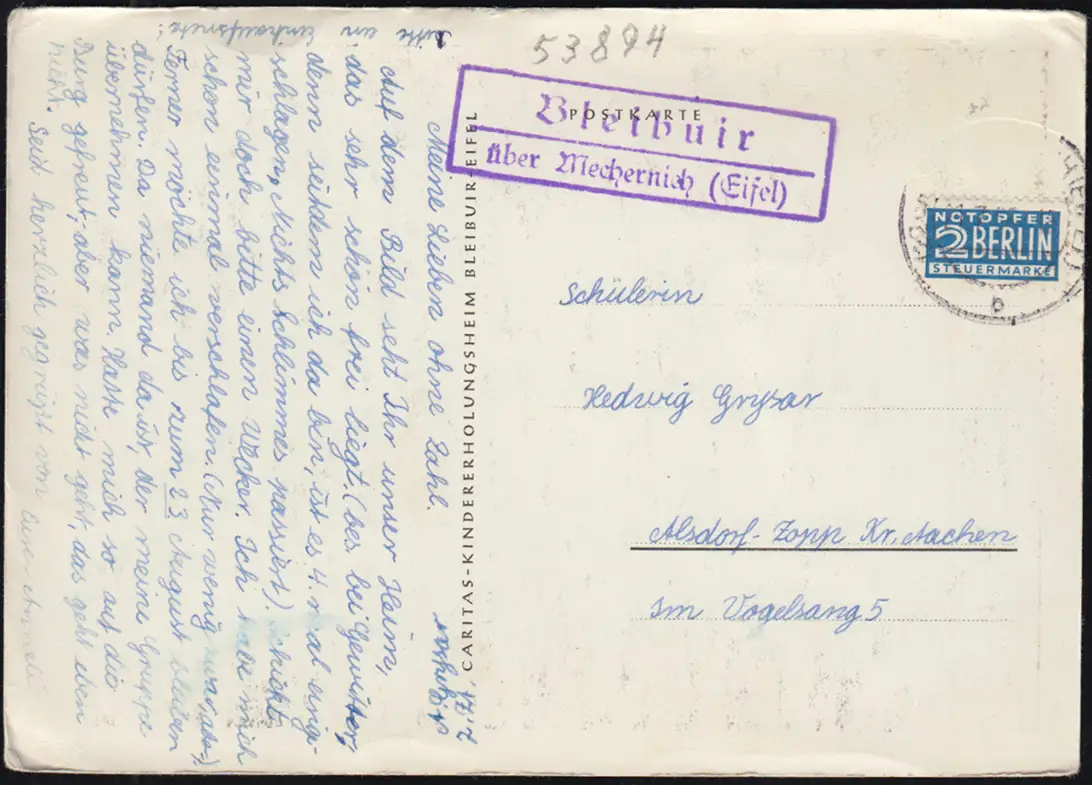 53894
POSTKARTE
Bleibuir
über Mechernich (Eifel)
NOTOPFER
2 BERLIN
STEUERMARKE
b
Schülerin
Hedwig Grysar
Alsdorf-Zopp Kr. Aachen
Im Vogelsang 5
CARITAS-KINDERERHOLUNGSHEIM BLEIBUIR-EIFEL
Meine Lieben ohne Zahl.
Auf dem Bild seht Ihr unser Heim,
das sehr schön frei liegt. (bes. bei Gewitter,
denn seitdem ich da bin, ist es 4 mal einge-
schlagen, Nichts Schlimmes passiert). Schickt
mir doch bitte einen Wecker. Ich habe mich
schon einmal verschlafen. (Nur wenig
Ferner möchte ich bis zum 23 August bleiben
dürfen. Da niemand da ist, der meine Gruppe
übernehmen kann. Hatte mich so auf die
Burg gefreut, aber was nicht geht, das geht eben
nicht. Seid herzlich gegrüßt von Eurer
Bitte ein Einkaufsnetz!